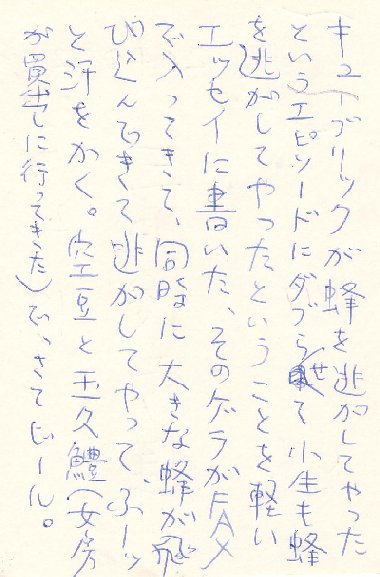 キューブリックが蜂を逃がしてやった
というエピソードにダブらせて小生も蜂
を逃がしてやったということを軽い
エッセイに書いた、そのゲラがFAX
で入ってきて、同時に大きな蜂が飛
び込んできて逃がしてやって、ふーッ
と汗をかく。空豆と玉久鱧(女房
が買出しに行ってきた)で、さてビール。